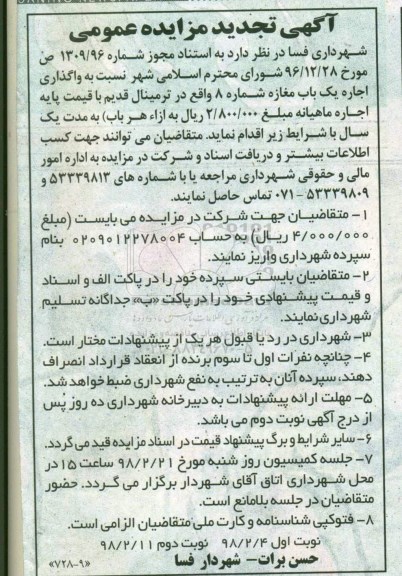 آگهی تجدید مزایده عمومی
شهرداری فسا در نظر دارد به استناد مجوز شماره ۱۳۰۹/۹۶ ص
مورخ ۹۶/۱۲/۲۸ شورای محترم اسلامی شهر نسبت به واگذاری
اجاره یک باب مغازه شماره ۸ واقع در ترمینال قدیم با قیمت پایه
اجاره ماهیانه مبلغ ۲/۸۰۰/۰۰۰ ریال به ازاء هر باب) به مدت یک
سال با شرایط زیر اقدام نماید. متقاضیان می توانند جهت کسب
اطلاعات بیشتر و دریافت اسناد و شرکت در مزایده به اداره امور
مالی و حقوقی شهرداری مراجعه یا با شماره های ۵۳۳۳۹۸۱۳ و
۵۳۳۳۹۸۰۹ - ۰۷۱ تماس حاصل نمایند.
۱- متقاضیان جهت شرکت در مزایده می بایست (مبلغ
۴/۰۰۰/۰۰۰ ریال) به حساب ۰۲۰۹۰۱۲۲۷۸۰۰۴ بنام
سپرده شهرداری واریز نمایند.
۲- متقاضیان بایستی سپرده خود را در پاکت الف و اسناد
و قیمت پیشنهادی خود را در پاکت «ب» جداگانه تسلیم
شهرداری نمایند.
۳- شهرداری در رد یا قبول هر یک از پیشنهادات مختار است.
۴- چنانچه نفرات اول تا سوم برنده از انعقاد قرارداد انصراف
دهند، سپرده آنان به ترتیب به نفع شهرداری ضبط خواهد شد.
۵- مهلت ارائه پیشنهادات به دبیرخانه شهرداری ده روز پس
از درج آگهی نوبت دوم می باشد.
۶- سایر شرایط و برگ پیشنهاد قیمت در اسناد مزایده قید می گردد.
۷- جلسه کمیسیون روز شنبه مورخ ۹۸/۲/۲۱ ساعت ۱۵ در
محل شهرداری اتاق آقای شهردار برگزار می گردد. حضور
متقاضیان در جلسه بلامانع است.
۸- فتوکپی شناسنامه و کارت ملی متقاضیان الزامی است.
نوبت اول ۹۸/۲/۴ نوبت دوم ۹۸/۲/۱۱
حسن برات - شهردار فسا
«۷۲۸-۹»